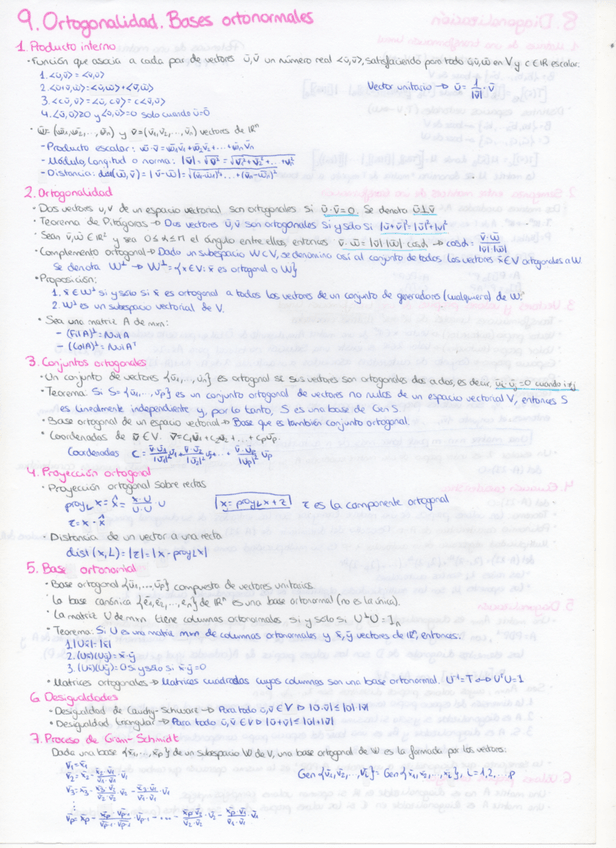 9. Ortogonalidad. Bases ortonormales
1. Producto interno
· Función que asocia a cada par de vectores ū, v̄ un número real <ū,v̄>, satisfaciendo para todo ū,v̄,w̄ en V y c∈ℝ escalar:
1. <ū,v̄> = <v̄,ū>
2. <ū+v̄,w̄> = <ū,w̄> + <v̄,w̄>
3. <cū,v̄> = <ū,cv̄> = c<ū,v̄>
4. <ū,ū>≥0 y <ū,ū>=0 solo cuando ū=0̄
Vector unitario → ū = 1/|v̄| · v̄
· w̄ = (w̄1, w̄2, ..., w̄n) y v̄ = (v̄1, v̄2, ..., v̄n) vectores de ℝⁿ
- Producto escalar: w̄·v̄ = w̄1v̄1 + w̄2v̄2 + ... + w̄nv̄n
- Módulo, longitud o norma: |v̄| = √v̄² = √v̄1² + v̄2² + ... + v̄n²
- Distancia: dist(w̄,v̄) = |v̄-w̄| = √(v̄1-w̄1)² + ... + (v̄n-w̄n)²
2. Ortogonalidad
· Dos vectores u, v de un espacio vectorial son ortogonales si ū·v̄=0. Se denota ū⊥v̄
· Teorema de Pitágoras → Dos vectores ū, v̄ son ortogonales si y sólo si |ū+v̄|²=|ū|²+|v̄|²
· Sean v̄, w̄ ∈ ℝ² y sea 0≤α≤π el ángulo entre ellas, entonces v̄·w̄ = |v̄||w̄| cosα → cosα = v̄·w̄/|v̄||w̄|
· Complemento ortogonal → Dado un subespacio W⊂V, se denomina así al conjunto de todos los vectores x̄∈V ortogonales a W
Se denota W⊥ → W⊥ = {x∈V: x̄ es ortogonal a W}
· Proposición:
1. x̄∈W⊥ si y sólo si x̄ es ortogonal a todos los vectores de un conjunto de generadores (cualquiera) de W.
2. W⊥ es un subespacio vectorial de V.
· Sea una matriz A de mxn:
- (Fil A)⊥ = Nul A
- (Col A)⊥ = Nul Aᵀ
3. Conjuntos ortogonales
· Un conjunto de vectores {ū1, ..., ūn} es ortogonal si sus vectores son ortogonales dos a dos, es decir, ūi·ūj=0 cuando i≠j
· Teorema: Si S={ū1, ..., ūp} es un conjunto ortogonal de vectores no nulos de un espacio vectorial V, entonces S
es linealmente independiente y, por lo tanto, S es una base de Gen S.
· Base ortogonal de un espacio vectorial → Base que es también conjunto ortogonal.
· Coordenadas de v̄∈V: v̄ = c1ū1 + c2ū2 + ... + cpūp
4. Proyección ortogonal
· Proyección ortogonal sobre rectas
proyL x = x̂ = x·u/u·u u
x = proyL x + z
z es la componente ortogonal
z = x - x̂
· Distancia de un vector a una recta
dist (x,L) = |z| = |x - proyL x|
5. Base ortonormal
· Base ortogonal {ū1, ..., ūp} compuesto de vectores unitarios.
· La base canónica {ē1, ē2, ..., ēn} de ℝⁿ es una base ortonormal (no es la única).
· La matriz U de mxn tiene columnas ortonormales si y sólo si UᵗU = In
· Teorema: Si U es una matriz mxn de columnas ortonormales y x̄, ȳ vectores de ℝⁿ, entonces:
1. |Ux̄| = |x̄|
2. (Ux̄)(Uȳ) = x̄·ȳ
3. (Ux̄)(Uȳ) = 0 si y sólo si x̄·ȳ = 0
· Matrices ortogonales → Matrices cuadradas cuyas columnas son una base ortonormal.
6. Desigualdades
· Desigualdad de Cauchy-Schwarz → Para todo ū,v̄∈V → |ū·v̄| ≤ |ū|·|v̄|
· Desigualdad triangular → Para todo ū,v̄∈V → |ū+v̄| ≤ |ū|+|v̄|
7. Proceso de Gram-Schmidt
Dada una base {x̄1, ..., x̄p} de un subespacio W de V, una base ortogonal de W es la formada por los vectores:
v̄1 = x̄1
v̄2 = x̄2 - x̄2·v̄1/v̄1·v̄1 · v̄1
v̄3 = x̄3 - x̄3·v̄2/v̄2·v̄2 · v̄2 - x̄3·v̄1/v̄1·v̄1 · v̄1
Gen {v̄1, v̄2, ..., v̄i} = Gen {x̄1, x̄2, ..., x̄i}, i=1,2,...p
⋮
v̄p = x̄p - x̄p·v̄p-1/v̄p-1·v̄p-1 · v̄p-1 - ... - x̄p·v̄2/v̄2·v̄2 · v̄2 - x̄p·v̄1/v̄1·v̄1 · v̄1